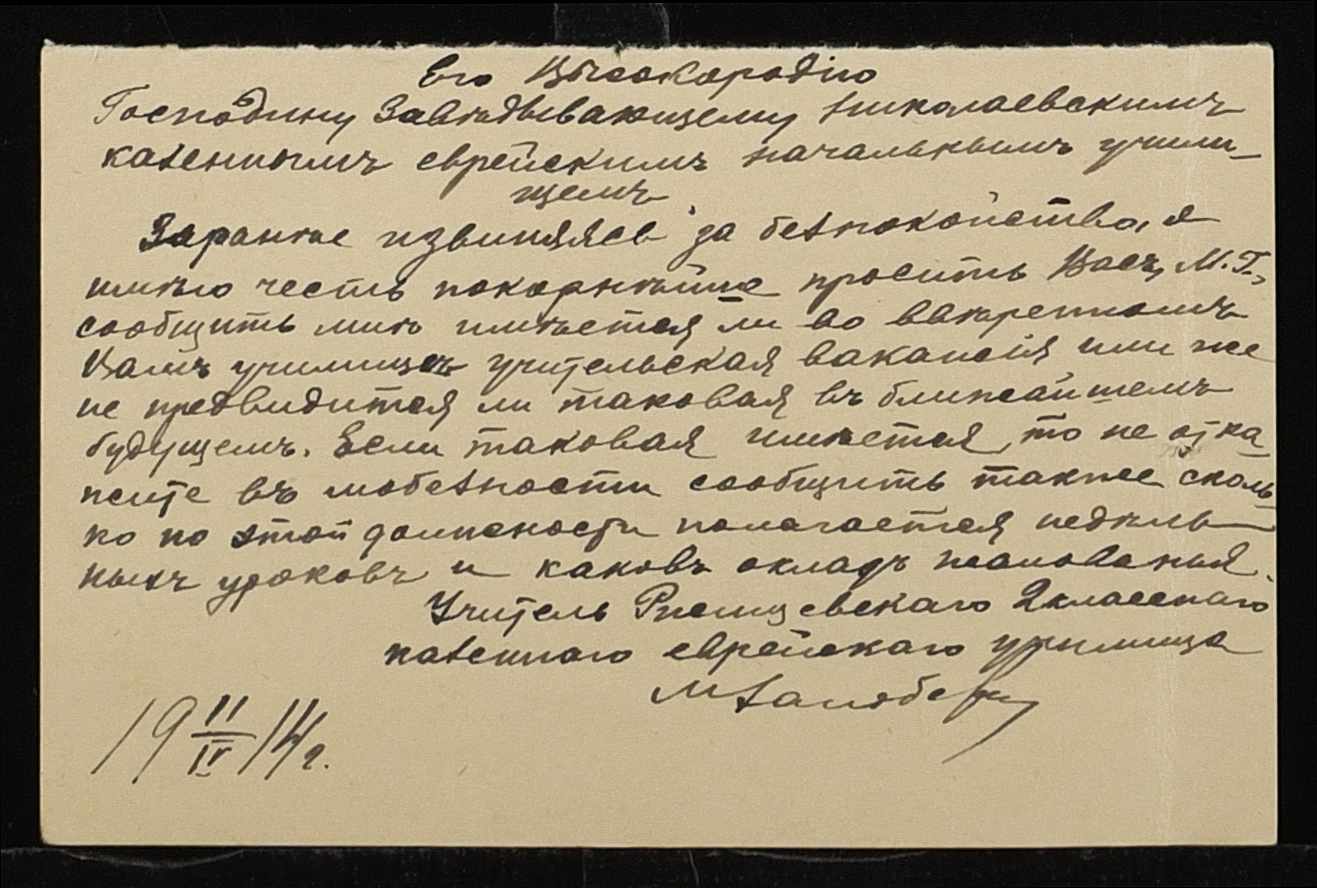 Его Высокородію
Господину Завѣдывающему Николаевскимъ
казеннымъ еврейскимъ начальнымъ учили-
щемъ
Заранѣе извиняясь за безпокойство, я
имѣю честь покорнѣйше просить Васъ, М.Г.,
сообщить мнѣ имѣется ли во ввѣренномъ
Вамъ училищѣ учительская вакансія или же
не предвидится ли таковая въ ближайшемъ
будущемъ. Если таковая имѣется, то не отка
жите въ любезности сообщить также сколь
ко по этой должности полагается недѣль-
ныхъ уроковъ и каковъ окладъ жалованья.
Учитель Ржищевскаго 2классного
казеннаго еврейскаго училища
М
19 11/IV 14 г.